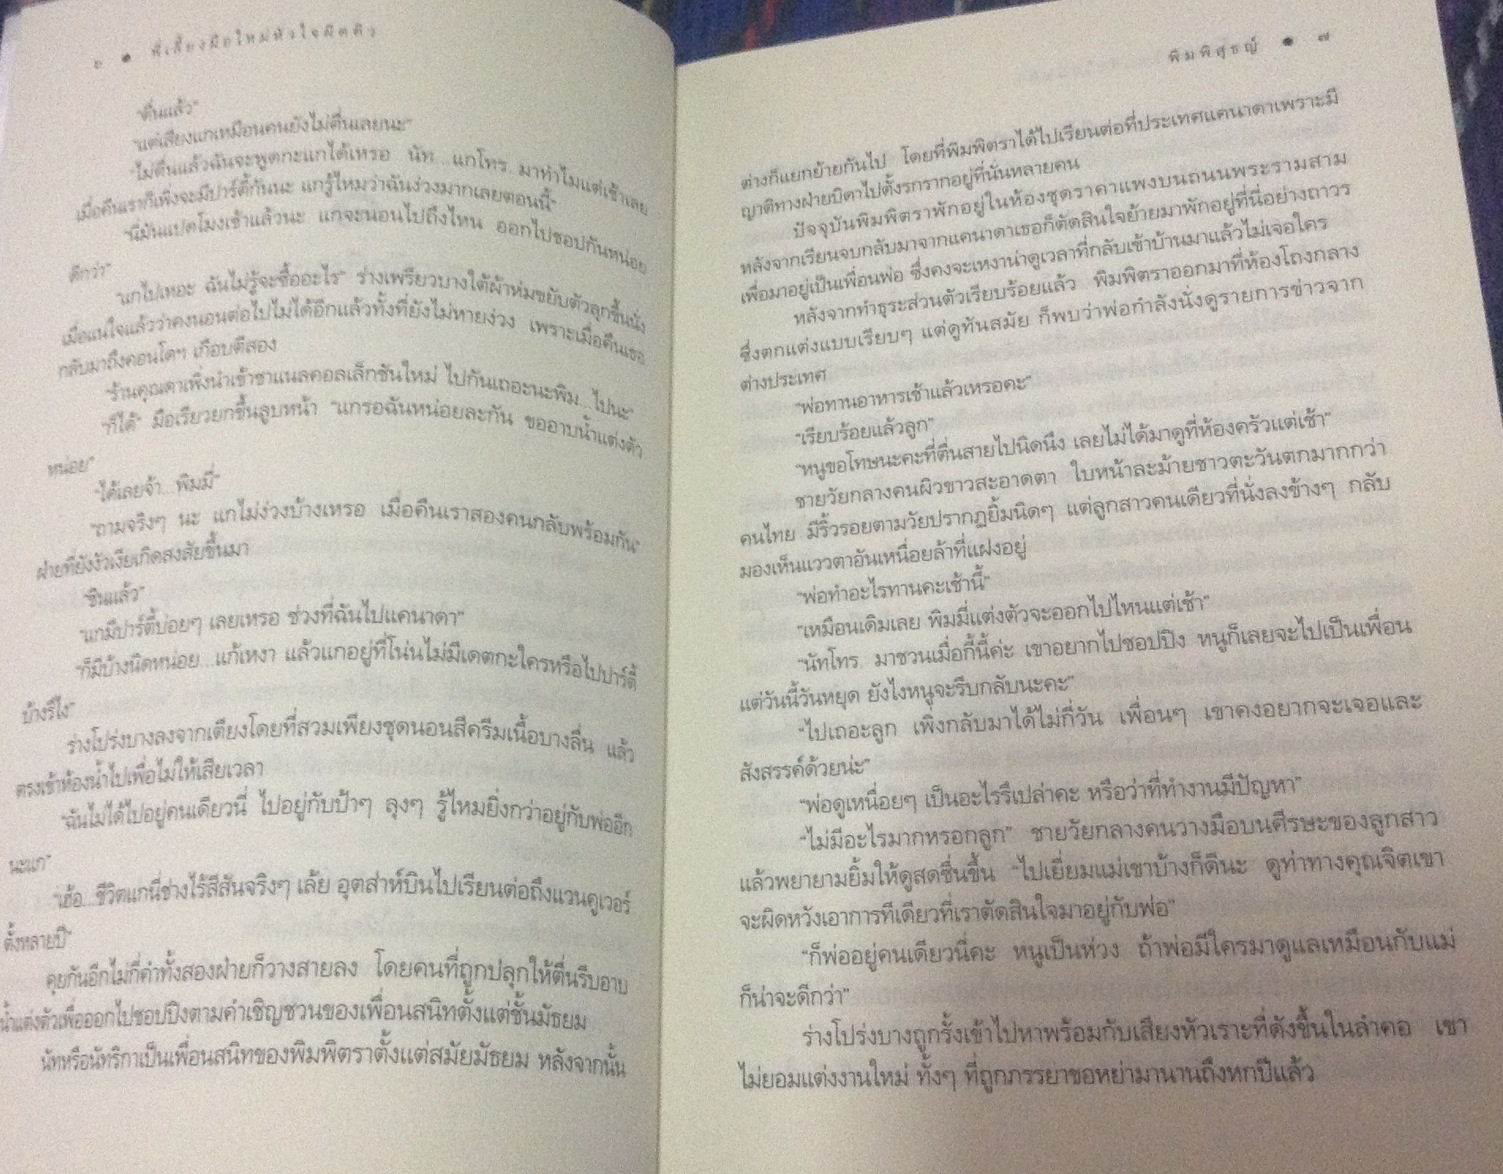 ๖ ๑ พี่เลี้ยงมือใหม่หัวใจผิดคิว
"ตื่นแล้ว"
"แต่เสียงแกเหมือนคนยังไม่ตื่นเลยนะ"
"ไม่ตื่นแล้วฉันจะพูดกะแกได้เหรอ นัท...แกโทร. มาทำไมแต่เช้าเลย
เมื่อคืนเราก็เพิ่งจะมีปาร์ตี้กันนะ แกรู้ไหมว่าฉันง่วงมากเลยตอนนี้"
"นี่มันแปดโมงเช้าแล้วนะ แกจะนอนไปถึงไหน ออกไปชอปกันหน่อย
ดีกว่า"
"แกไปเหอะ ฉันไม่รู้จะซื้ออะไร" ร่างเพรียวบางใต้ผ้าห่มขยับตัวลุกขึ้นนั่ง
เมื่อแน่ใจแล้วว่าคงนอนต่อไปไม่ได้อีกแล้วทั้งที่ยังไม่หายง่วง เพราะเมื่อคืนเธอ
กลับมาถึงคอนโดฯ เกือบตีสอง
"ร้านคุณดาเพิ่งนำเข้าชาแนลคอลเล็กชันใหม่ ไปกันเถอะนะพิม...ไปนะ"
"ก็ได้" มือเรียวยกขึ้นลูบหน้า "แกรอฉันหน่อยละกัน ขออาบน้ำแต่งตัว
หน่อย"
"ได้เลยจ้า...พิมมี่"
"ถามจริงๆ นะ แกไม่ง่วงบ้างเหรอ เมื่อคืนเราสองคนกลับพร้อมกัน"
ฝ่ายที่ยังงัวเงียเกิดสงสัยขึ้นมา
"ชินแล้ว"
"แกมีปาร์ตี้บ่อยๆ เลยเหรอ ช่วงที่ฉันไปแคนาดา"
"ก็มีบ้างนิดหน่อย...แก้เหงา แล้วแกอยู่ที่โน่นไม่มีเดตกะใครหรือไปปาร์ตี้
บ้างรึไง"
ร่างโปร่งบางลงจากเตียงโดยที่สวมเพียงชุดนอนสีครีมเนื้อบางลื่น แล้ว
ตรงเข้าห้องน้ำไปเพื่อไม่ให้เสียเวลา
"ฉันไม่ได้ไปอยู่คนเดียวนี่ ไปอยู่กับป้าๆ ลุงๆ รู้ไหมยิ่งกว่าอยู่กับพ่ออีก
นะแก"
"เฮ้อ...ชีวิตแกนี่ช่างไร้สีสันจริงๆ เล้ย อุตส่าห์บินไปเรียนต่อถึงแวนคูเวอร์
ตั้งหลายปี"
คุยกันอีกไม่กี่คำทั้งสองฝ่ายก็วางสายลง โดยคนที่ถูกปลุกให้ตื่นรีบอาบ
น้ำแต่งตัวเพื่อออกไปชอปปิงตามคำเชิญชวนของเพื่อนสนิทตั้งแต่ชั้นมัธยม
นัทหรือนัทริกาเป็นเพื่อนสนิทของพิมพิตราตั้งแต่สมัยมัธยม หลังจากนั้น
พิมพิสุธญ์ ๑ ๗
ต่างก็แยกย้ายกันไป โดยที่พิมพิตราได้ไปเรียนต่อที่ประเทศแคนาดาเพราะมี
ญาติทางฝ่ายบิดาไปตั้งรกรากอยู่ที่นั่นหลายคน
ปัจจุบันพิมพิตราพักอยู่ในห้องชุดราคาแพงบนถนนพระรามสาม
หลังจากเรียนจบกลับมาจากแคนาดาเธอก็ตัดสินใจย้ายมาพักอยู่ที่นี่อย่างถาวร
เพื่อมาอยู่เป็นเพื่อนพ่อ ซึ่งคงจะเหงาน่าดูเวลาที่กลับเข้าบ้านมาแล้วไม่เจอใคร
หลังจากทำธุระส่วนตัวเรียบร้อยแล้ว พิมพิตราออกมาที่ห้องโถงกลาง
ซึ่งตกแต่งแบบเรียบๆ แต่ดูทันสมัย ก็พบว่าพ่อกำลังนั่งดูรายการข่าวจาก
ต่างประเทศ
"พ่อทานอาหารเช้าแล้วเหรอคะ"
"เรียบร้อยแล้วลูก"
"หนูขอโทษนะคะที่ตื่นสายไปนิดนึง เลยไม่ได้มาดูที่ห้องครัวแต่เช้า"
ชายวัยกลางคนผิวขาวสะอาดตา ใบหน้าละม้ายชาวตะวันตกมากกว่า
คนไทย มีริ้วรอยตามวัยปรากฏยิ้มนิดๆ แต่ลูกสาวคนเดียวที่นั่งลงข้างๆ กลับ
มองเห็นแววตาอันเหนื่อยล้าที่แฝงอยู่
"พ่อทำอะไรทานคะเช้านี้"
"เหมือนเดิมเลย พิมมี่แต่งตัวจะออกไปไหนแต่เช้า"
"นัทโทร. มาชวนเมื่อกี้นี้ค่ะ เขาอยากไปชอปปิง หนูก็เลยจะไปเป็นเพื่อน
แต่วันนี้วันหยุด ยังไงหนูจะรีบกลับนะคะ"
"ไปเถอะลูก เพิ่งกลับมาได้ไม่กี่วัน เพื่อนๆ เขาคงอยากจะเจอและ
สังสรรค์ด้วยน่ะ"
"พ่อดูเหนื่อยๆ เป็นอะไรรึเปล่าคะ หรือว่าที่ทำงานมีปัญหา"
"ไม่มีอะไรมากหรอกลูก" ชายวัยกลางคนวางมือบนศีรษะของลูกสาว
แล้วพยายามยิ้มให้ดูสดชื่นขึ้น "ไปเยี่ยมแม่เขาบ้างก็ดีนะ ดูท่าทางคุณจิตเขา
จะผิดหวังเอาการทีเดียวที่เราตัดสินใจมาอยู่กับพ่อ"
"ก็พ่ออยู่คนเดียวนี่คะ หนูเป็นห่วง ถ้าพ่อมีใครมาดูแลเหมือนกับแม่
ก็น่าจะดีกว่า"
ร่างโปร่งบางถูกรั้งเข้าไปหาพร้อมกับเสียงหัวเราะที่ดังขึ้นในลำคอ เขา
ไม่ยอมแต่งงานใหม่ ทั้งๆ ที่ถูกภรรยาขอหย่ามานานถึงหกปีแล้ว